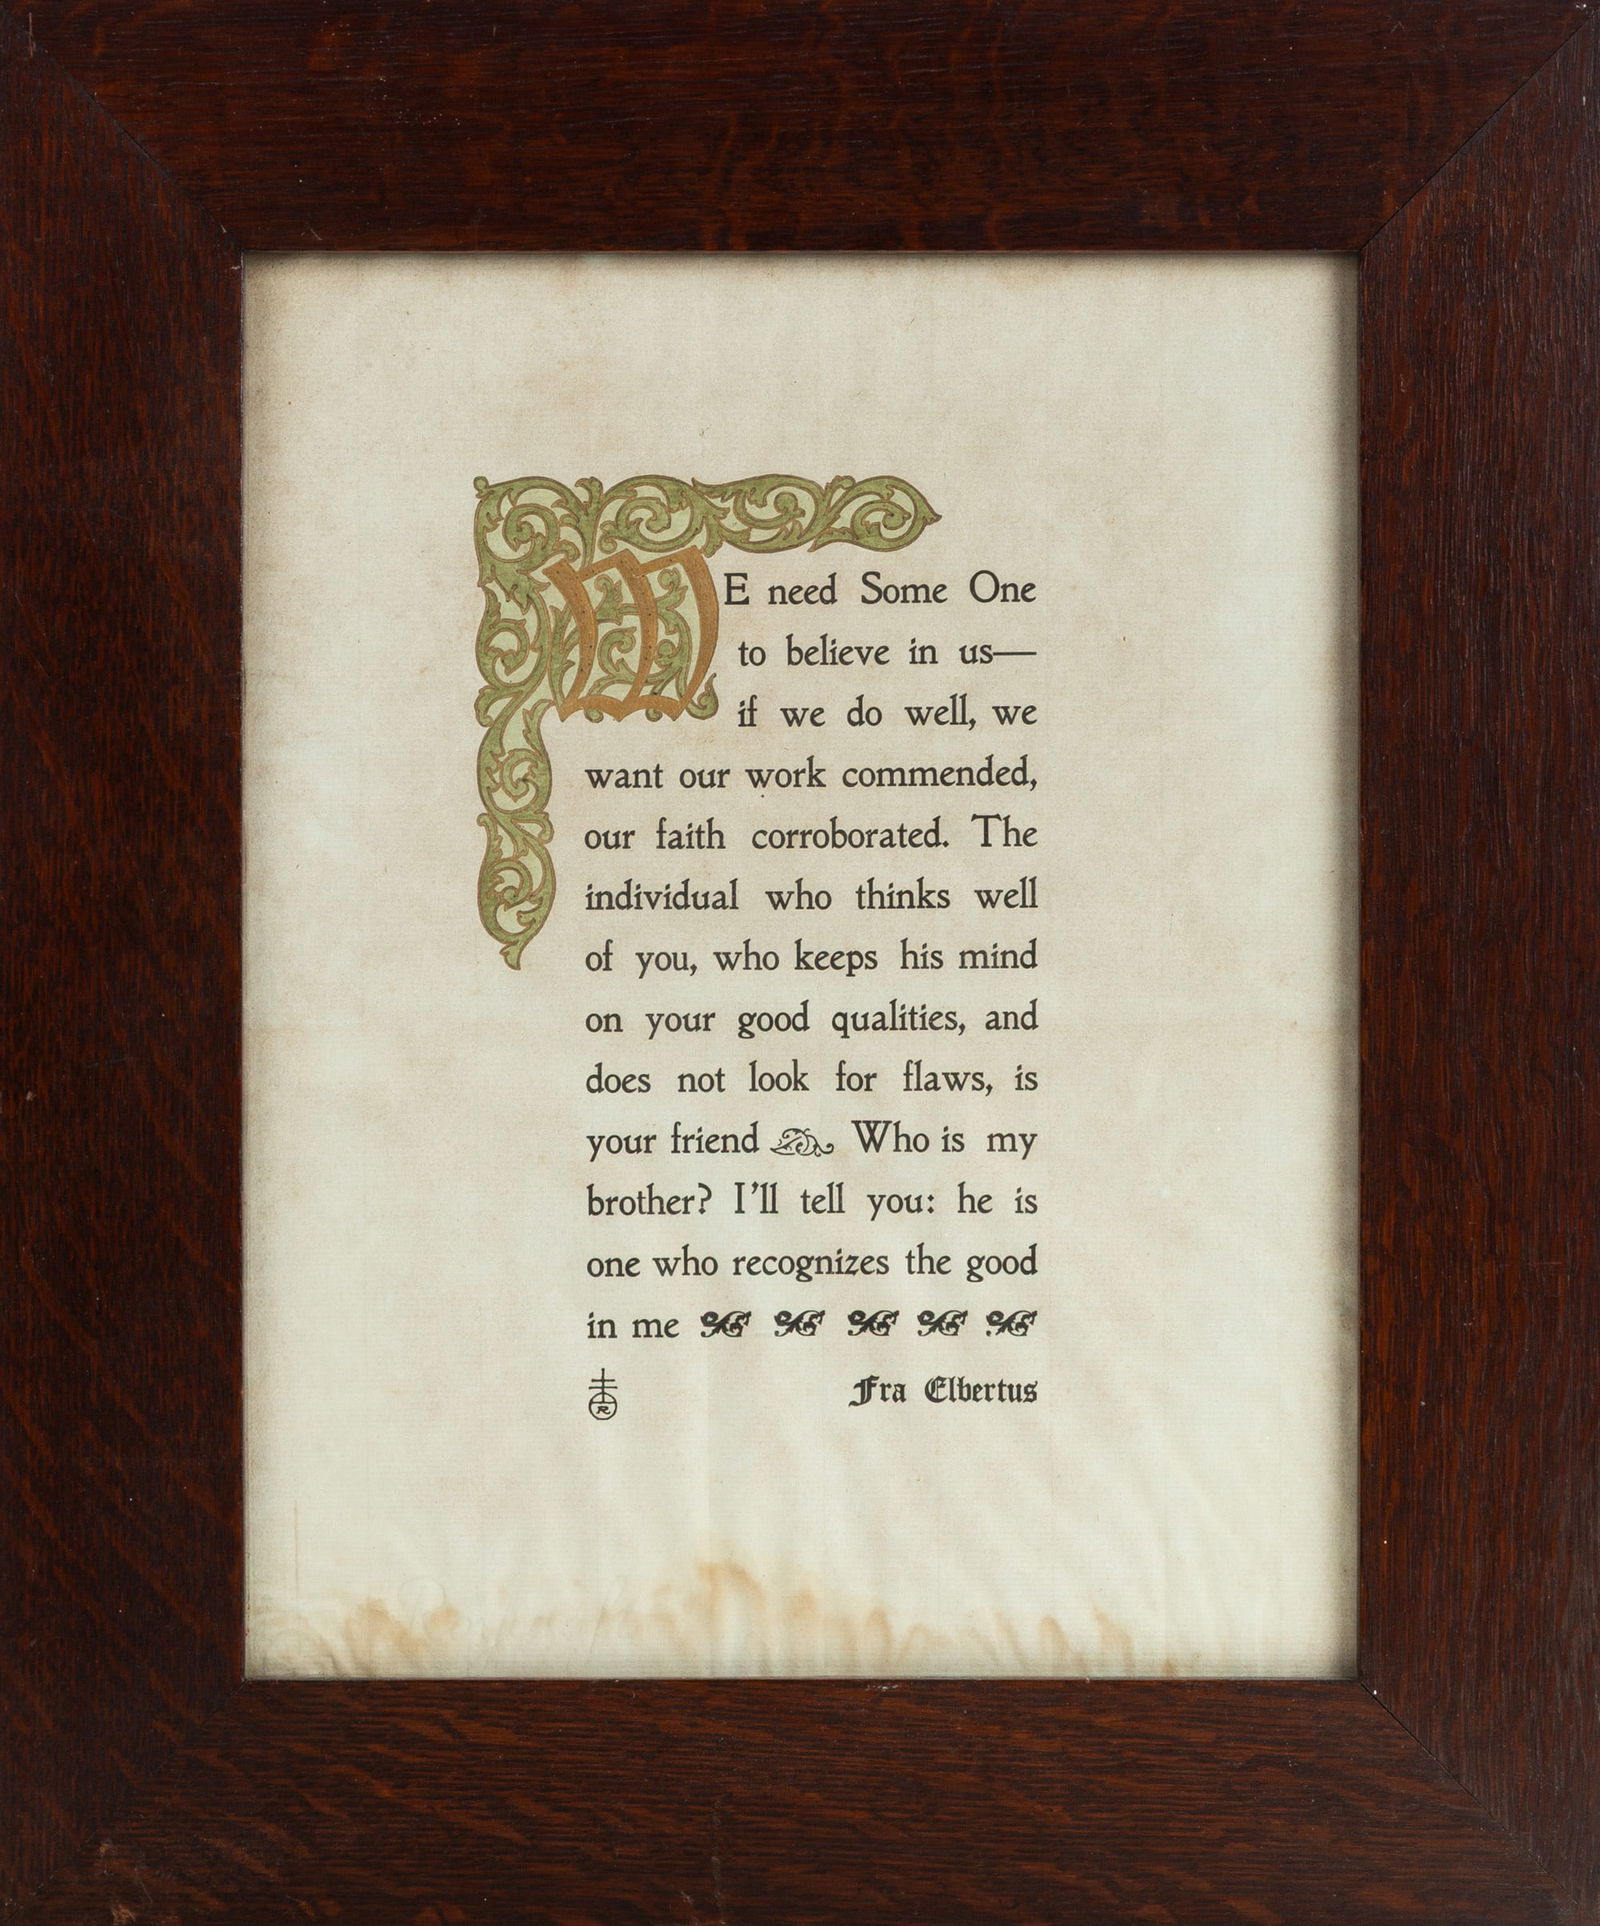 WE need Some One
to believe in us—
if we do well, we
want our work commended,
our faith corroborated. The
individual who thinks well
of you, who keeps his mind
on your good qualities, and
does not look for flaws, is
your friend Who is my
brother? I'll tell you: he is
one who recognizes the good
in me
R Fra Elbertus